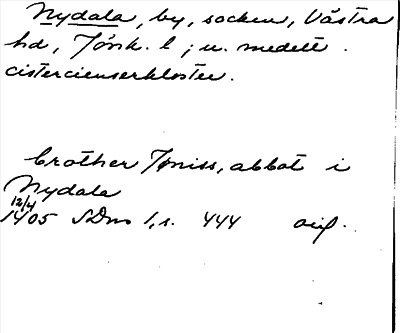 Nydala, by, socken, Västra
hd, Jönk. l ; u. medelt.
cistercienserkloster.
brother Jøniss, abbot i
Nydala
12/4
1405 SDns 1, s. 444 orig.